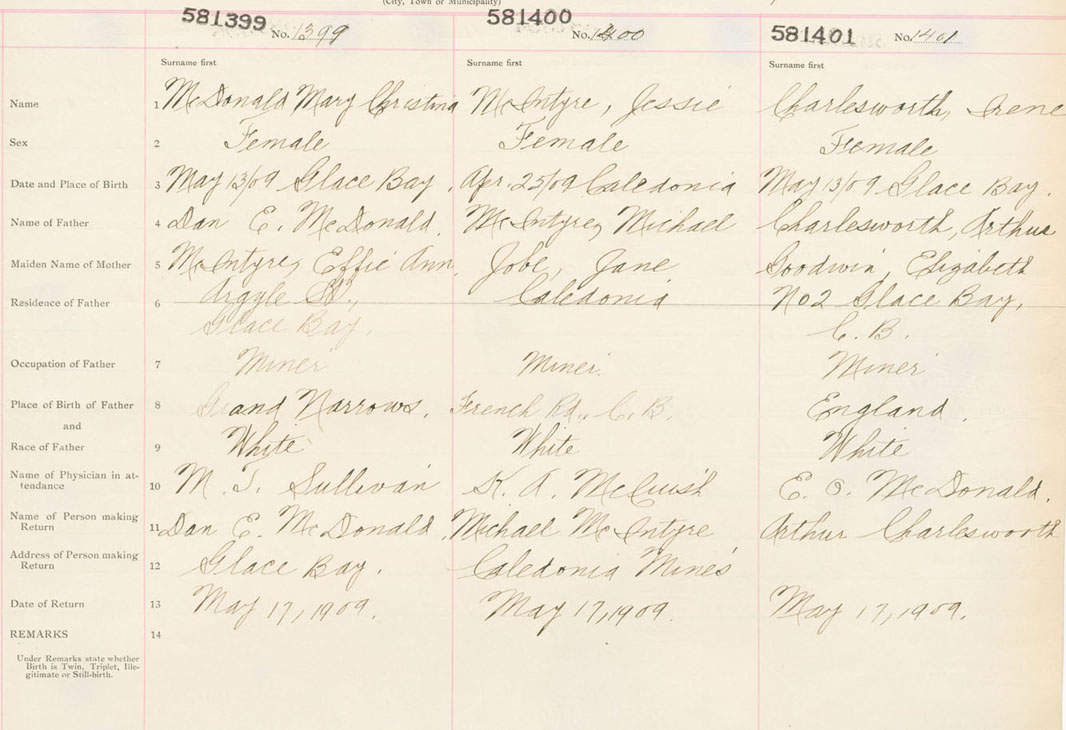 (City, Town or Municipality)
581399 No. 1399 581400 No. 1400 581401 No. 1401
Surname first Surname first Surname first
Name 1 McDonald Mary Christina McIntyre, Jessie Charlesworth, Irene
Sex 2 Female Female Female
Date and Place of Birth 3 May 13/09 Glace Bay. Apr. 25/09 Caledonia May 13/09 Glace Bay.
Name of Father 4 Dan E. McDonald. McIntyre, Michael Charlesworth, Arthur
Maiden Name of Mother 5 McIntyre, Effie Ann. Jobe, Jane Goodwin, Elizabeth
Residence of Father 6 Argyle St., Caledonia No 2 Glace Bay,
Glace Bay. C. B.
Occupation of Father 7 Miner Miner. Miner
Place of Birth of Father 8 Grand Narrows. French Rd., C. B. England.
and
Race of Father 9 White White White
Name of Physician in at-
tendance 10 M. T. Sullivan K. A. McCuish E. O. McDonald.
Name of Person making
Return 11 Dan E. McDonald. Michael McIntyre Arthur Charlesworth
Address of Person making
Return 12 Glace Bay. Caledonia Mines
Date of Return 13 May 17, 1909. May 17, 1909. May 17, 1909.
REMARKS 14
Under Remarks state whether
Birth is Twin, Triplet, Ille-
gitimate or Still-birth.